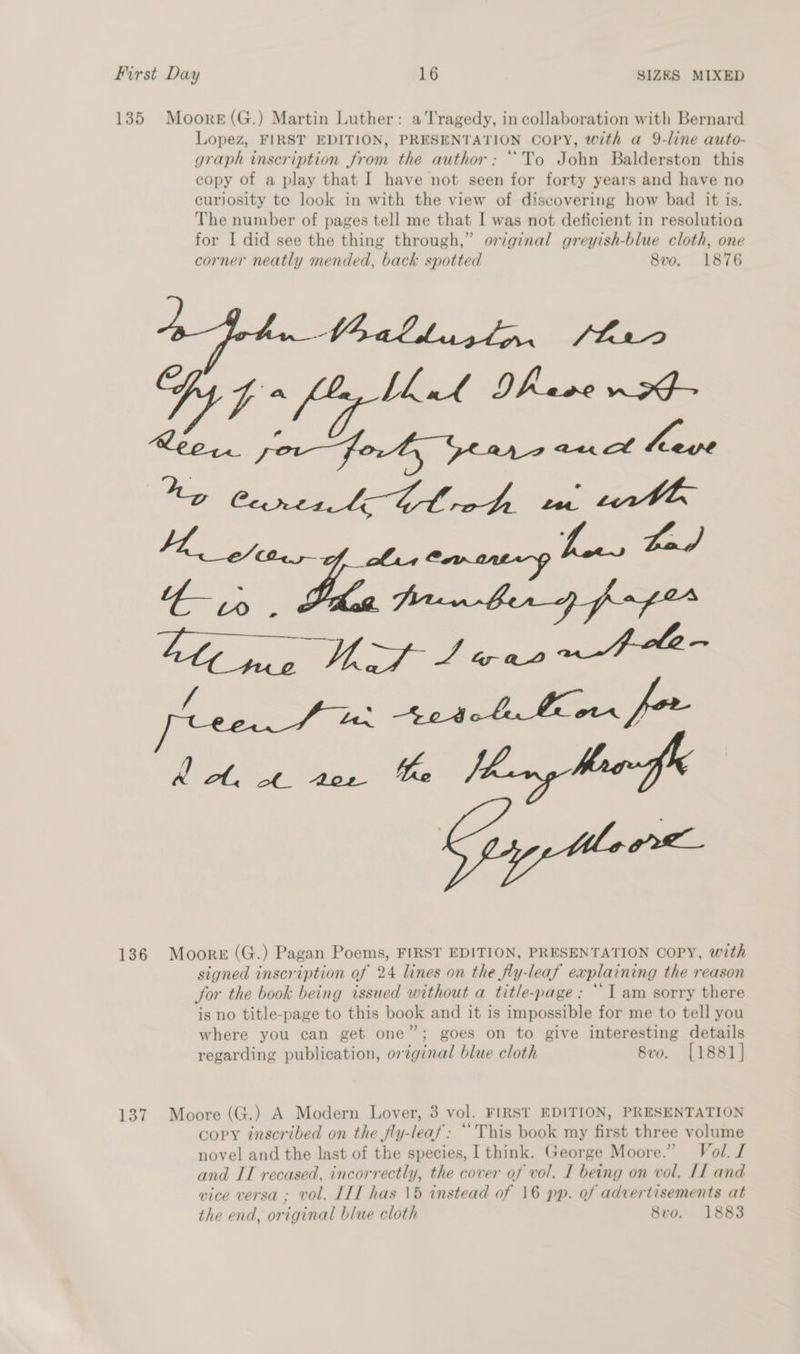 First Day 16 SIZES MIXED
135 MOORE (G.) Martin Luther: a Tragedy, in collaboration with Bernard
Lopez, FIRST EDITION, PRESENTATION COPY, with a 9-line auto-
graph inscription from the author: “To John Balderston this
copy of a play that I have not seen for forty years and have no
curiosity to look in with the view of discovering how bad it is.
The number of pages tell me that I was not deficient in resolution
for I did see the thing through,” original greyish-blue cloth, one
corner neatly mended, back spotted 8vo. 1876
To John Balderston this
Copy of a play that I have not
seen for forty years and have
no curiosity to look in with
the view of discovering how bad
it is. The number of pages
tell me that I was not defi-
cient in resolution for
I did see the thing through
George Moore
136 MOORE (G.) Pagan Poems, FIRST EDITION, PRESENTATION COPY, with
signed inscription of 24 lines on the fly-leaf explaining the reason
for the book being issued without a title-page; “I am sorry there
is no title-page to this book and it is impossible for me to tell you
where you can get one”; goes on to give interesting details
regarding publication, original blue cloth 8vo. [1881]
137 Moore (G.) A Modern Lover, 3 vol. FIRST EDITION, PRESENTATION
COPY inscribed on the fly-leaf: “This book my first three volume
novel and the last of the species, I think. George Moore.” Vol. I
and II recased, incorrectly, the cover of vol. I being on vol. II and
vice versa; vol. III has 15 instead of 16 pp. of advertisements at
the end, original blue cloth 8vo. 1883